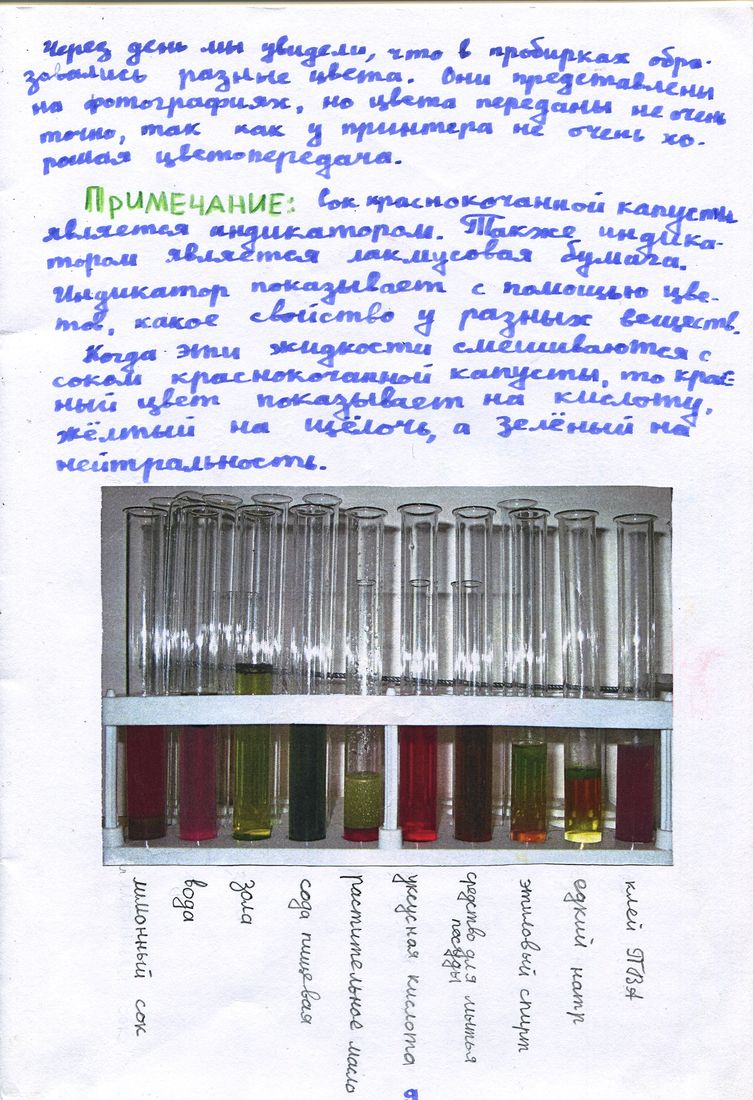 Через день мы увидели, что в пробирках обра-
зовались разные цвета. Они представлены
на фотографиях, но цвета переданы не очень
точно, так как у принтера не очень хо-
рошая цветопередача.
ПРИМЕЧАНИЕ: сок краснокочанной капусты
является индикатором. Также индика-
тором является лакмусовая бумага.
Индикатор показывает с помощью цве-
тов, какое свойство у разных веществ.
Когда эти жидкости смешиваются с
соком краснокочанной капусты, то крас-
ный цвет показывает на кислоту,
жёлтый на щёлочь, а зелёный на
нейтральность.
лимонный сок
вода
зола
сода пищевая
растительное масло
уксусная кислота
средство для мытья
посуды
этиловый спирт
едкий натр
клей ПВА